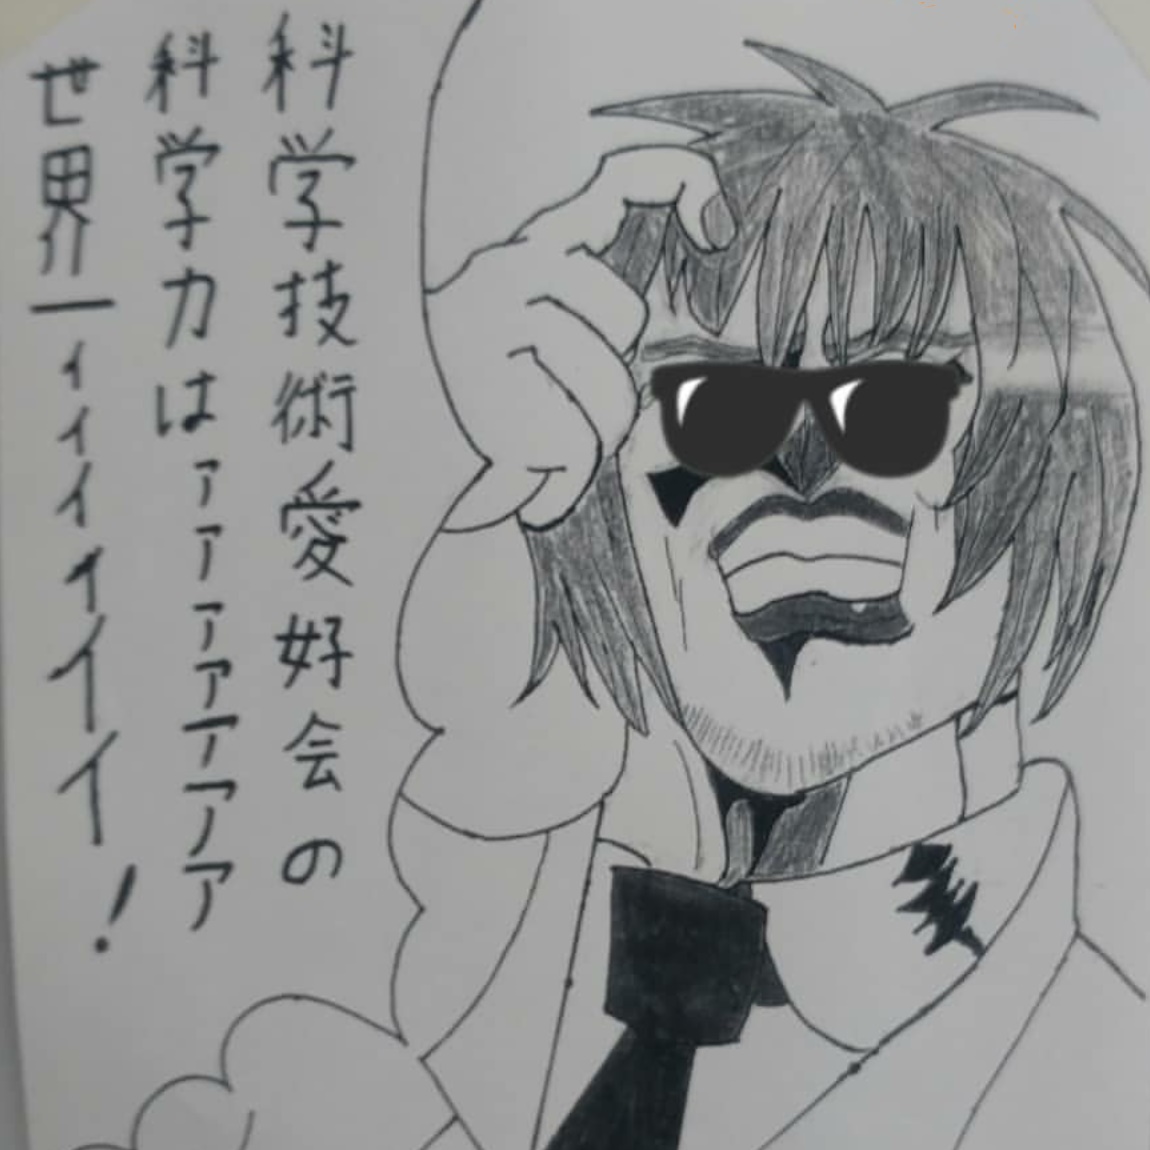 科学技術愛好会の
科学力はァァァァアアア
世界一ィィィィイイ!